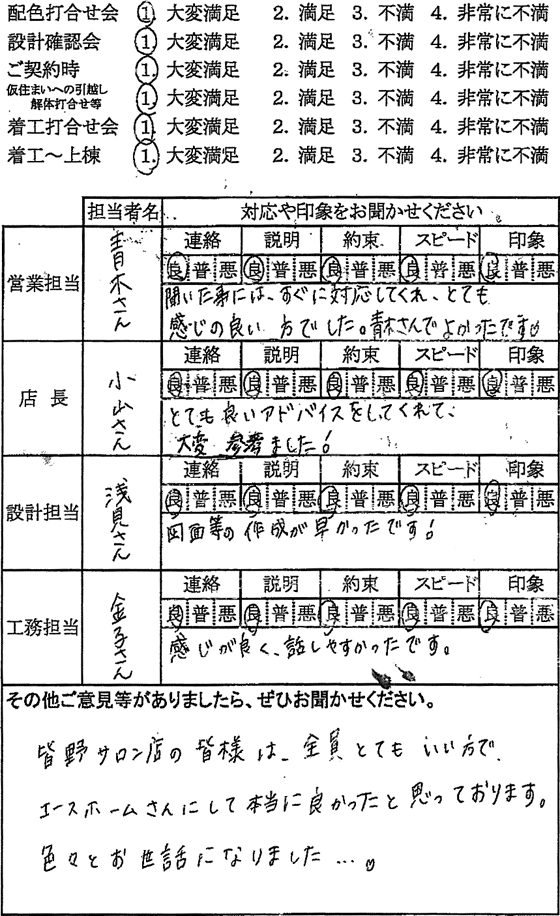 配色打合せ会 1. 大変満足 2. 満足 3. 不満 4. 非常に不満
設計確認会 1. 大変満足 2. 満足 3. 不満 4. 非常に不満
ご契約時 1. 大変満足 2. 満足 3. 不満 4. 非常に不満
仮住まいへの引越し
解体打合せ等 1. 大変満足 2. 満足 3. 不満 4. 非常に不満
着工打合せ会 1. 大変満足 2. 満足 3. 不満 4. 非常に不満
着工～上棟 1. 大変満足 2. 満足 3. 不満 4. 非常に不満
担当者名 対応や印象をお聞かせください
営業担当 青木さん
連絡 説明 約束 スピード 印象
良 普 悪 良 普 悪 良 普 悪 良 普 悪 良 普 悪
聞いた事には、すぐに対応してくれ、とても
感じの良い方でした。青木さんでよかったです
店長 小山さん
連絡 説明 約束 スピード 印象
良 普 悪 良 普 悪 良 普 悪 良 普 悪 良 普 悪
とても良いアドバイスをしてくれて、
大変 参考ました!
設計担当 浅見さん
連絡 説明 約束 スピード 印象
良 普 悪 良 普 悪 良 普 悪 良 普 悪 良 普 悪
図面等の作成が早かったです!
工務担当 金子さん
連絡 説明 約束 スピード 印象
良 普 悪 良 普 悪 良 普 悪 良 普 悪 良 普 悪
感じが良く、話しやすかったです。
その他ご意見等がありましたら、ぜひお聞かせください。
皆野サロン店の皆様は、全員とてもいい方で、
エースホームさんにして本当に良かったと思っております。
色々とお世話になりました…。